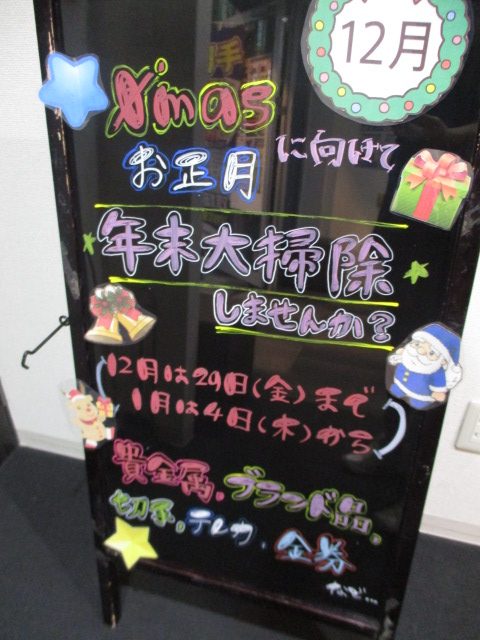 12月
X'mas
お正月 に向けて
年末大掃除
しませんか?
12月は29日(金)まで
1月は4日(木)から
貴金属、ブランド品、
切手、テレカ、金券
など…